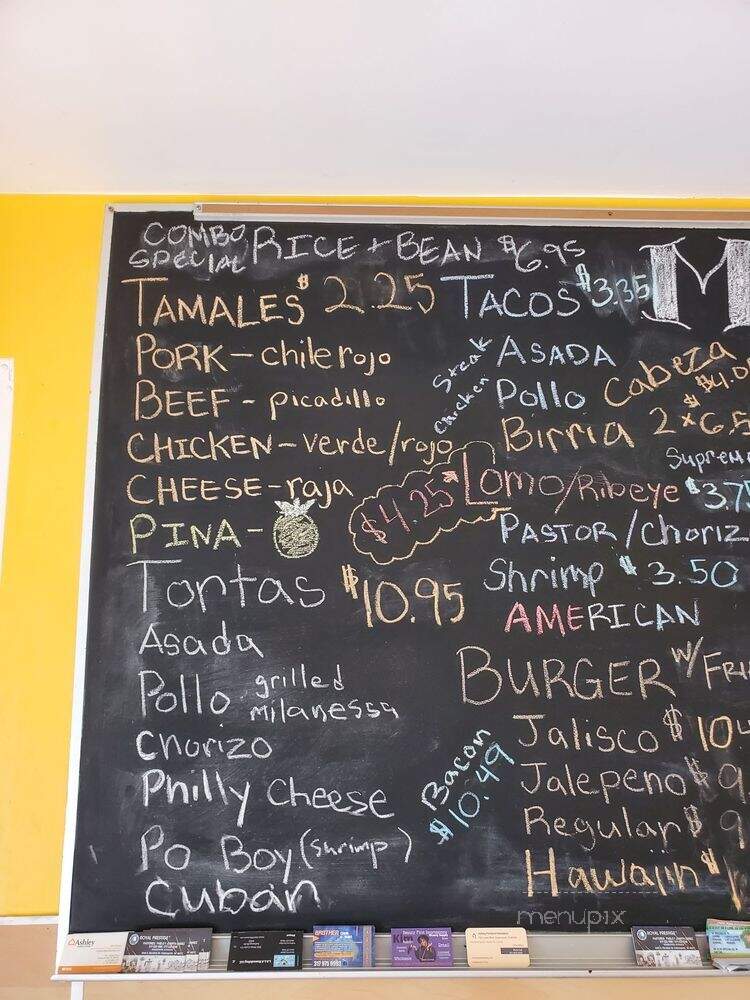 COMBO SPECIAL RICE + BEAN $6.95
TAMALES $2.25
PORK - chile rojo
BEEF - picadillo
CHICKEN - verde/rojo
CHEESE - raja
PINA -
Tortas $10.95
Asada
Pollo grilled
milanessa
chorizo
Philly cheese
Po Boy (shrimp)
Cuban
M
TACOS $3.35
Steak ASADA
chicken Pollo
Cabeza
$4.0
Birria 2 x 6.5
Suprem
$4.25* Lomo/Ribeye $3.7
PASTOR/choriz
Shrimp $3.50
AMERICAN
BURGER w/ FRI
Jalisco $10
Jalepeno $9
Regular $9
Bacon
$10.49
Hawaiin $
menupix
Ashley
ROYAL PRESTIGE
BROTHER
317 975 9993
Ken
ROYAL PRESTIGE